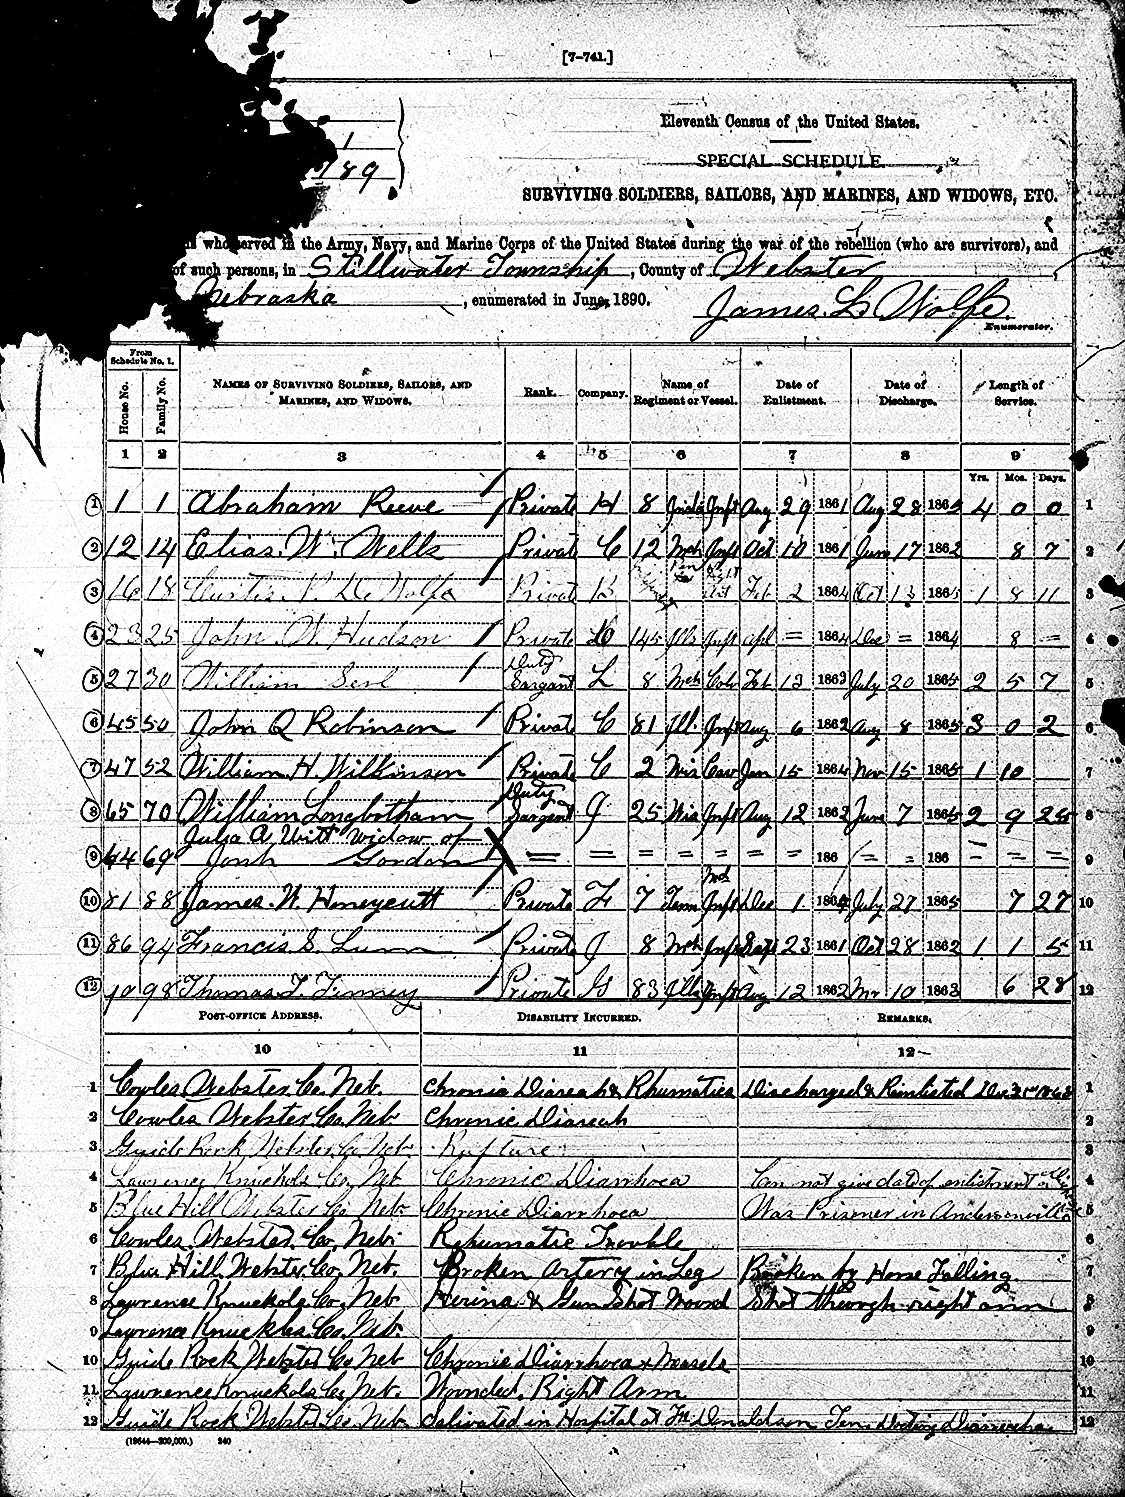 [7-741.]
Eleventh Census of the United States.
1
189
SPECIAL SCHEDULE.
SURVIVING SOLDIERS, SAILORS, AND MARINES, AND WIDOWS, ETC.
who served in the Army, Navy, and Marine Corps of the United States during the war of the rebellion (who are survivors), and
of such persons, in Stillwater Township, County of Webster
Nebraska, enumerated in June, 1890. James L. Wolfe
Enumerator.
From Schedule No. 1.
House No. Family No. Names of Surviving Soldiers, Sailors, and Marines, and Widows. Rank. Company. Name of Regiment or Vessel. Date of Enlistment. Date of Discharge. Length of Service.
1 2 3 4 5 6 7 8 9
Yrs. Mos. Days.
1 1 1 Abraham Reeve Private H 8 Inda Inft Aug 29 1861 Aug 28 1865 4 0 0 1
2 12 14 Elias W. Wells Private C 12 Mch Inft Oct 10 1861 June 17 1862 8 7 2
3 16 18 Curtis P. De Wolfe Private B Feb 2 1864 Oct 13 1865 1 8 11 3
4 23 25 John W. Hudson Private 145 Ills Inft Apl = 1864 Dec = 1864 8 = 4
5 27 30 William Serl Duty Sargant L 8 Mch Calv Feb 13 1863 July 20 1865 2 5 7 5
6 45 50 John Q Robinson Private C 81 Ill. Inft Aug 6 1862 Aug 8 1865 3 0 2 6
7 47 52 William H. Wilkinson Private C 2 Wis Cav Jan 15 1864 Nov 15 1865 1 10 7
8 65 70 William Longbotham Duty Sargent G 25 Wis Inft Aug 12 1862 June 7 1865 2 9 25 8
Julia A Witt widow of
9 64 69 Gordon = = = = = = = 186 = = 186 = = = 9
10 81 88 James. W. Honeycutt Private F 7 Tenn Mtd Inft Dec 1 1864 July 27 1865 7 27 10
11 86 94 Francis S. Lunn Private J 8 Mch Inft Sept 23 1861 Oct 28 1862 1 1 5 11
12 90 98 Thomas T. Finney Private G 83 Ills Inft Aug 12 1862 Mr 10 1863 6 28 12
Post-office Address. Disability Incurred. Remarks.
10 11 12
1 Cowles Webster Co. Neb. Chronia Diareah & Rhumatics Discharged & Reinlisted 1
2 Cowles Webster Co. Neb. Chronic Diareah 2
3 Guide Rock Webster Co. Neb. Rupture 3
4 Lawrence Knuckols Co. Neb Chronic Diarrhoea Can not give date of enlistment 4
5 Blue Hill Webster Co Neb. Chronic Diarrhoea Was Prisoner in Andersonville 5
6 Cowles Webster Co. Neb. Rhumatic Trouble 6
7 Blue Hill Webster Co. Neb. Broken Artery in Leg Broken by Horse Falling. 7
8 Lawrence Knuckols Co. Neb & Gun Shot Wound Shot through right arm 8
9 Lawrence Knuckols Co. Neb. 9
10 Guide Rock Webster Co Neb Chronic Diarrhoea & Measels 10
11 Lawrence Knuckols Co Neb. Wounded. Right Arm 11
12 Guide Rock Webster Co. Neb. Salivated in Hospital at Ft Donaldson Tenn 12
(19644—200,000.) 240